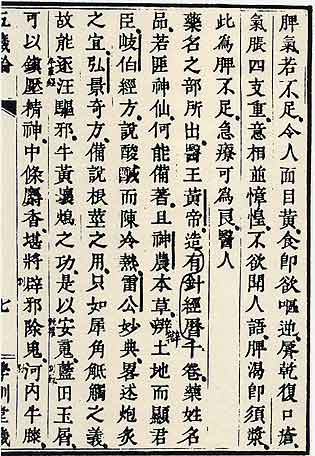 脾氣若不足令人面目黃食卽欲嘔逆脣乾復口瘡
氣脹四支重意相並慞惶不欲聞人語脾湯卽須漿
此為脾不足急療可為良醫人
藥名之部所出醫王黃帝造有針經曆千卷藥姓名
品若匪神仙何能備著且神農本草辨土地而顯君
臣岐伯經方說酸鹹而陳冷熱雷公妙典畧述炮炙
之宜弘景奇方備說根莖之用只如犀角觝觸之義
故能逐汪驅邪牛黃壤之功是以安䰟藍田玉屑
可以鎮壓精神中條麝香堪將辟邪除鬼河內牛膝
七